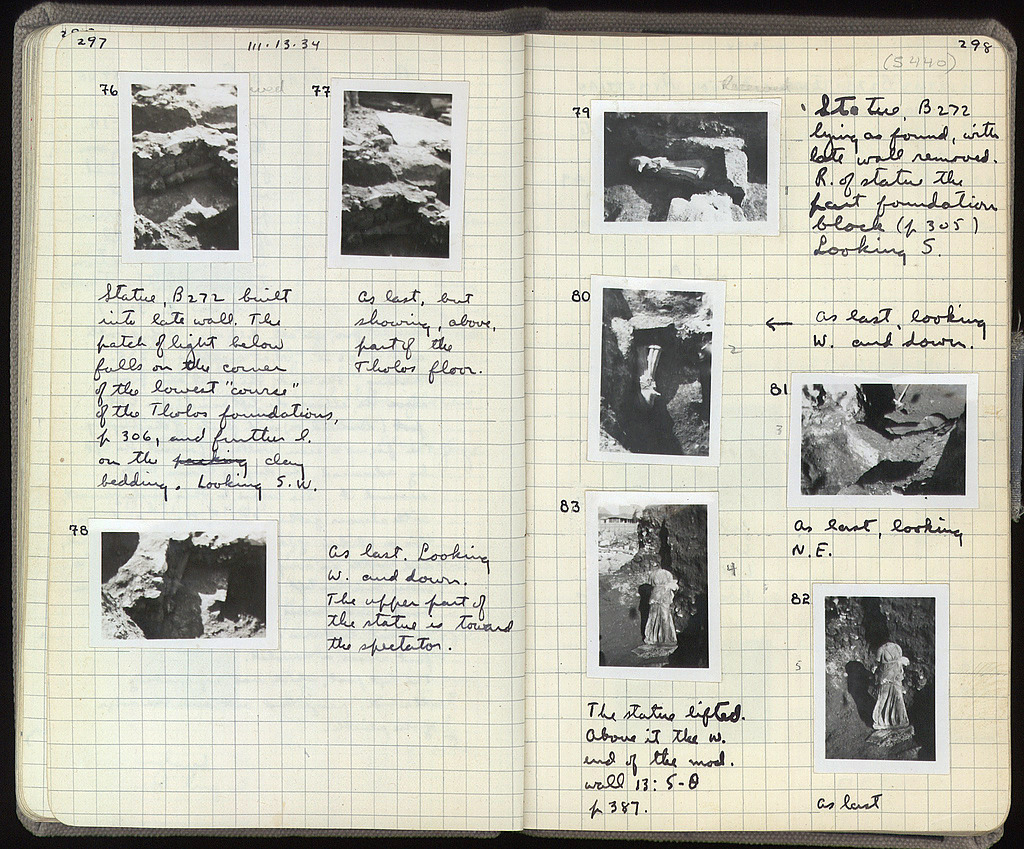 297
111·13·34
76
77
Statue, B272 built
into late wall. The
patch of light below
falls on the corner
of the lowest "course"
of the Tholos foundations,
p 306, and further l.
on the packing clay
bedding. Looking S.W.
as last, but
showing, above,
part of the
Tholos floor.
78
as last. Looking
W. and down.
The upper part of
the statue is toward
the spectator.
298
(S440)
79
Statue, B272
lying as found, with
late wall removed.
R. of statue the
foundation
block (p 305)
Looking S.
1
80
← as last, looking
W. and down.
2
81
3
as last, looking
N.E.
83
4
The statue lifted.
Above it the W.
end of the mod.
wall 13: 5-Θ
p 387.
82
5
as last